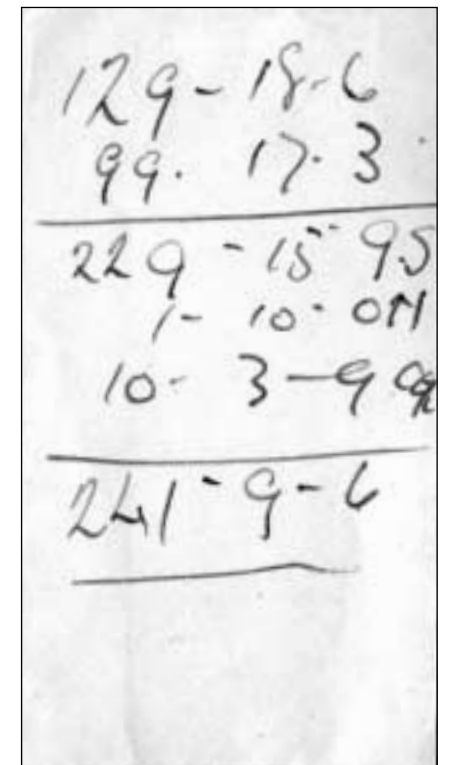 129 - 18-6
99. 17. 3
229 - 15 9.S
1- 10- 0
10- 3 - 9
241 - 9 - 6